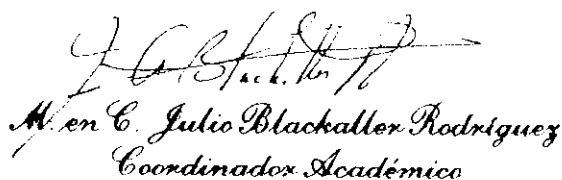 M. en C. Julio Blackaller Rodríguez
Coordinador Académico